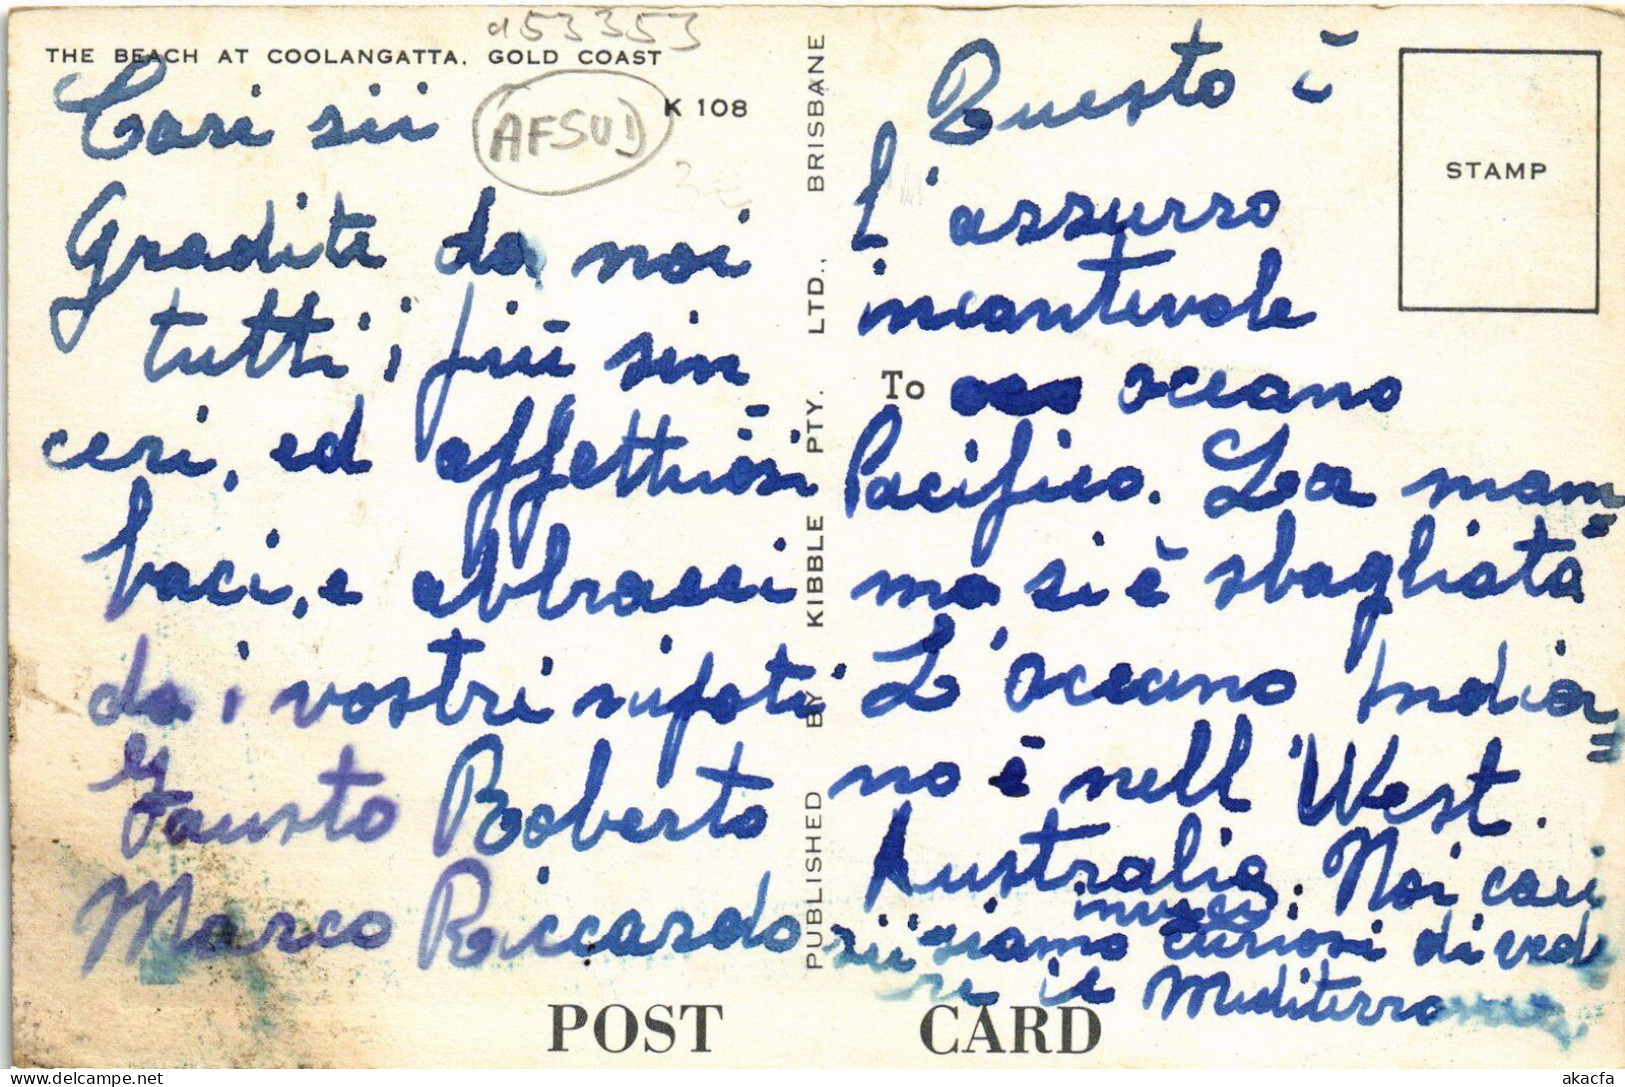 a53353
THE BEACH AT COOLANGATTA. GOLD COAST
K 108
AFSUD
Cari sii
Gradite da noi
tutti i più sin
ceri, ed affettuosi
baci, e abbracci
da i vostri nipoti
Fausto Roberto
Marco Riccardo
PUBLISHED BY KIBBLE PTY. LTD., BRISBANE
Questo è
l'azzurro
incantevole
To oceano
Pacifico. La mam
ma si è sbagliata
L'oceano India=
no è nell West.
Australia. Noi cari
invece
sii siamo curiosi di vede
re il Mediterraneo
STAMP
POST CARD
akacfa